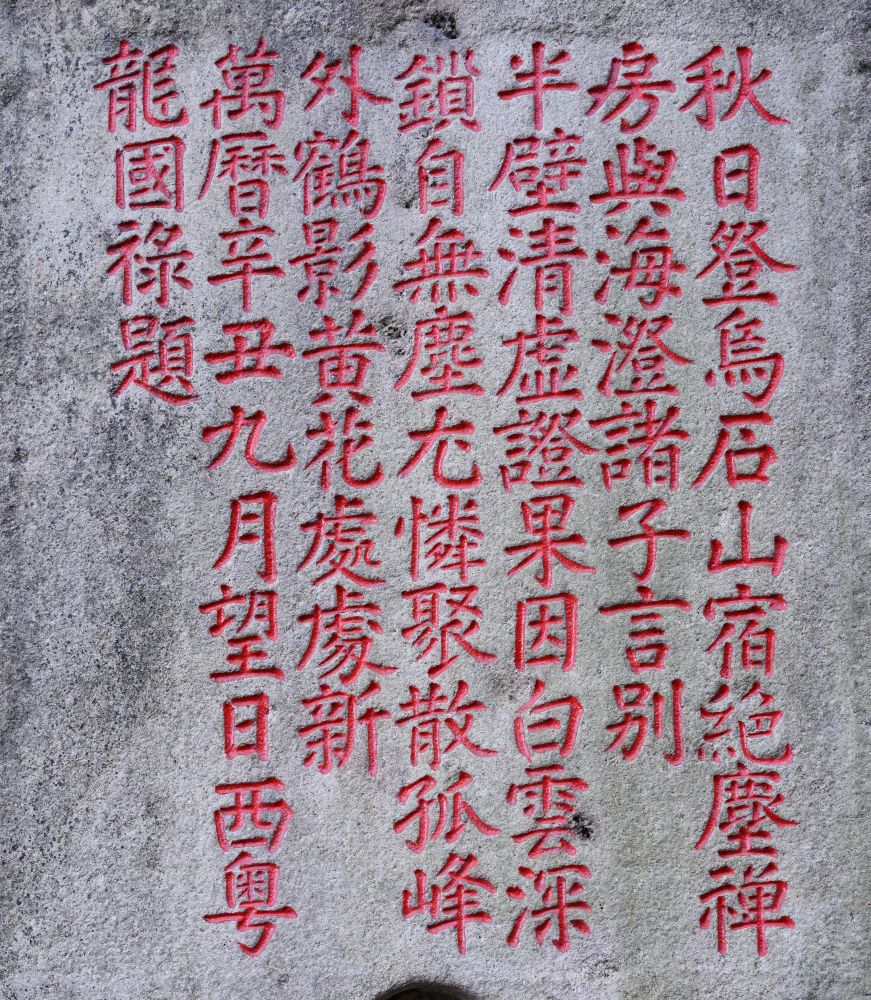 秋日登烏石山宿絶塵禅
房與海澄諸子言别
半壁清虛證果因白雲深
鎖自無塵尢憐聚散孤峰
外鶴影黄花處處新
萬曆辛丑九月望日西粤
龍國祿題